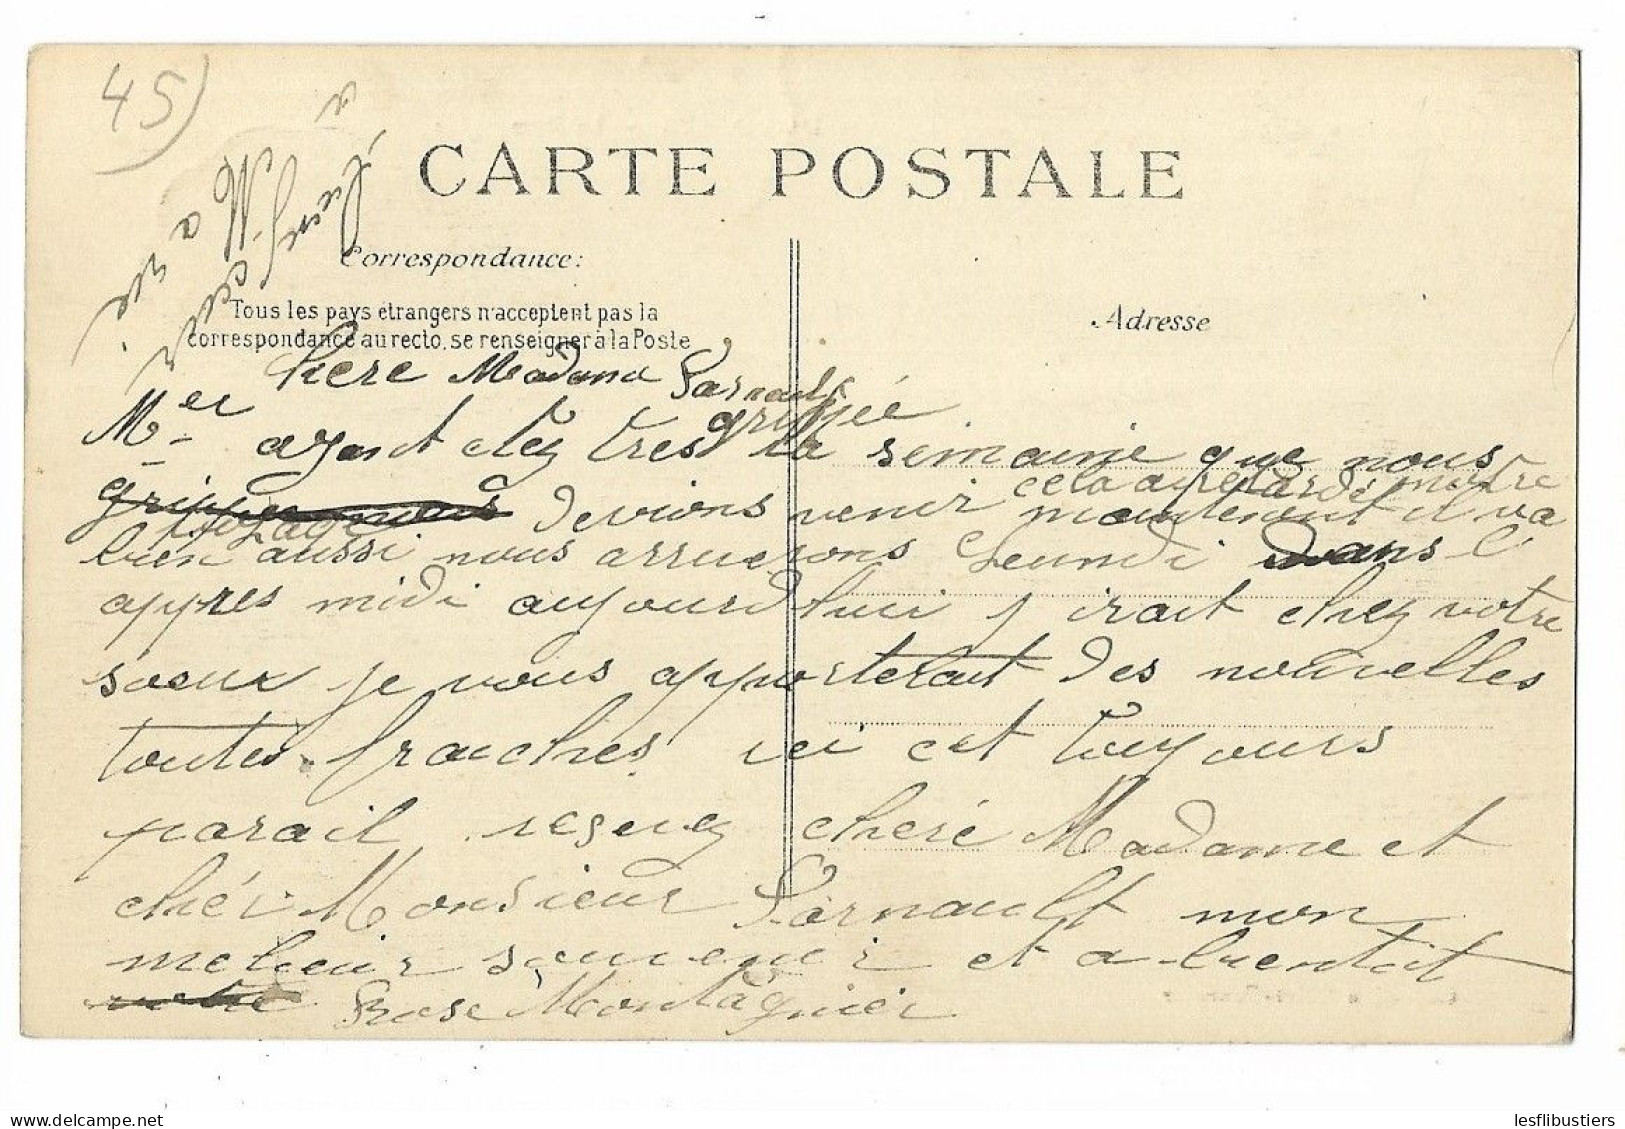 45)
CARTE POSTALE
Correspondance:
Tous les pays étrangers n'acceptent pas la
correspondance au recto, se renseigner à la Poste
Adresse
chere Madame Parnault
Mr ayant etez tres grippée la semaine que nous
grippe nous devions venir cela a retardé notre
voyage maintenant il va
bien aussi nous arriverons Leundi dans l'
apres midi aujourdhui j irait chez votre
soeur je vous apporterait des nouvelles
toutes fraiches ici cet toujours
parail resevez cheré Madame et
chér Monsieur Parnault mon
melieur souvenir et a bientôt
votre Rose Montagnier
lesflibustiers